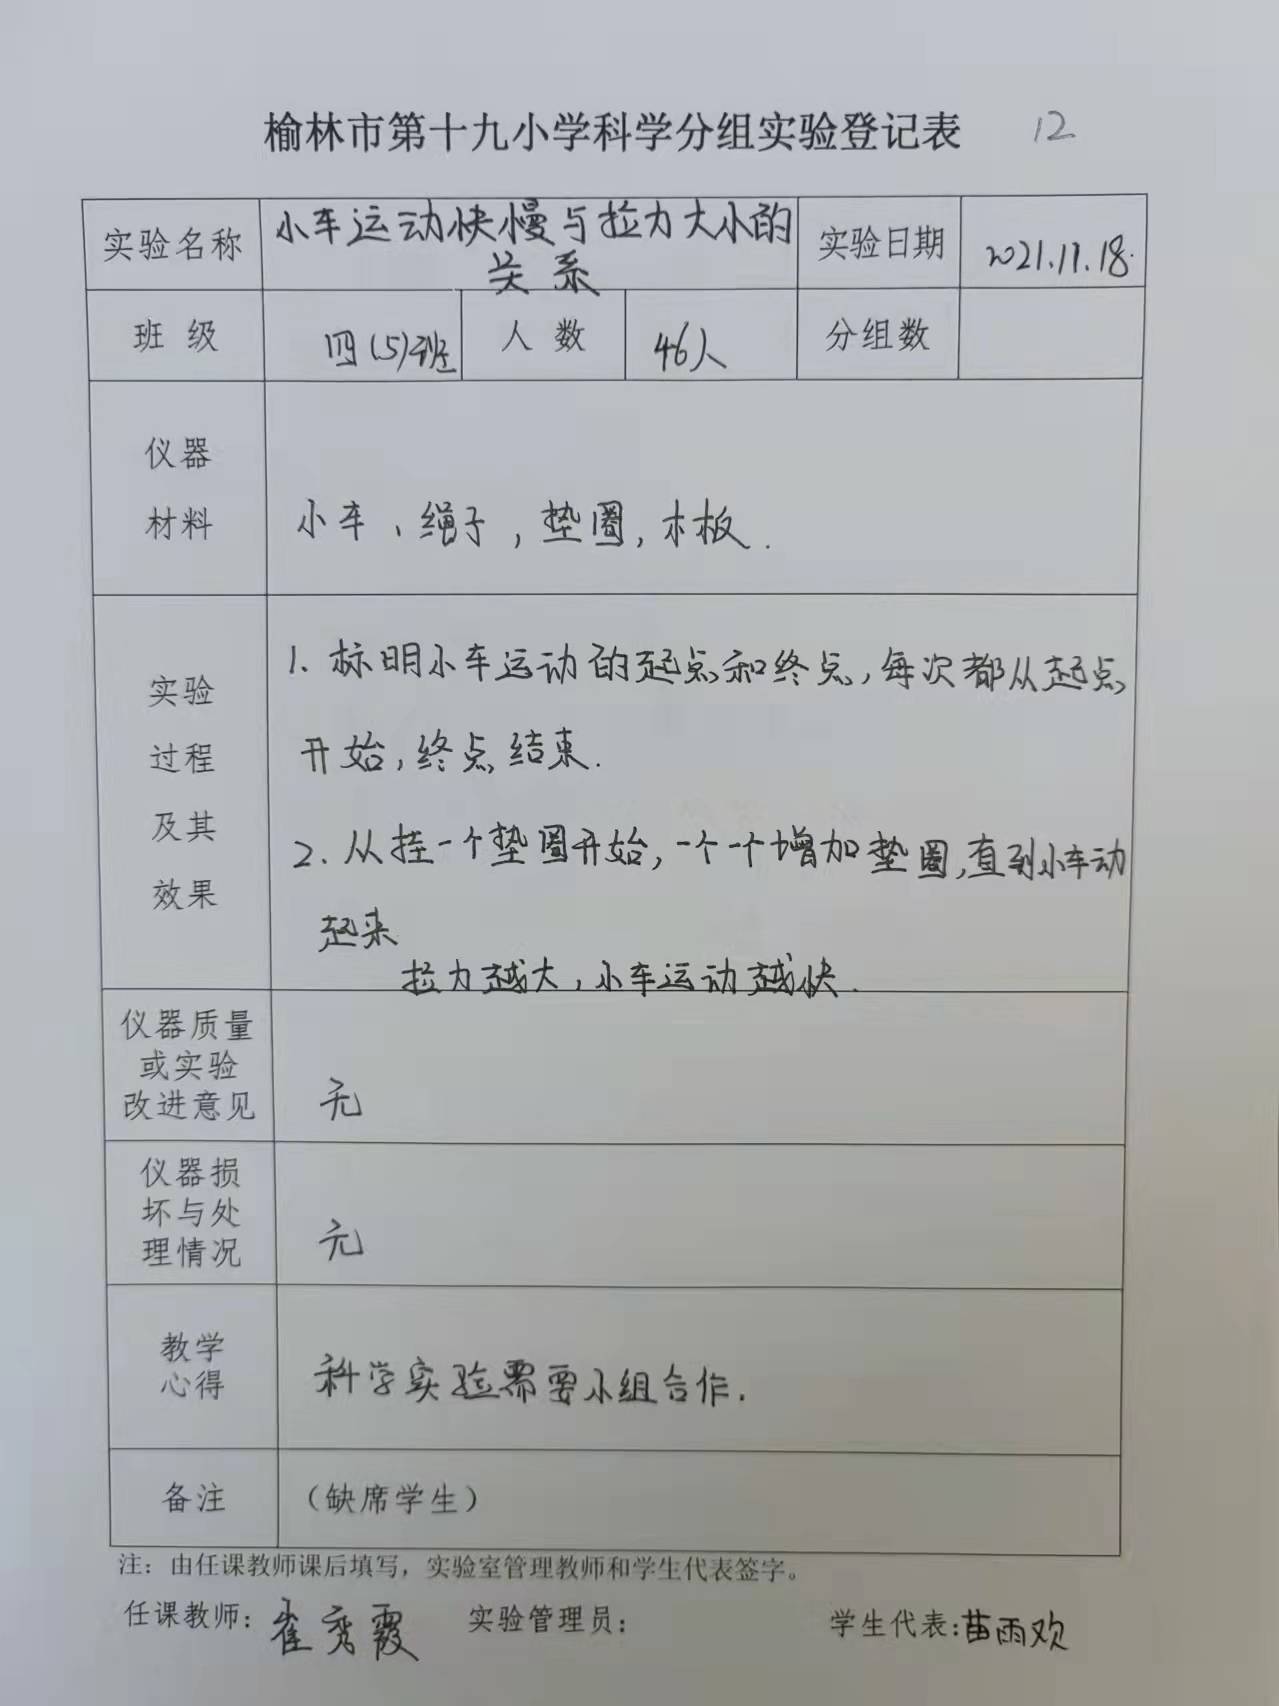 榆林市第十九小学科学分组实验登记表 12
实验名称 小车运动快慢与拉力大小的
关系 实验日期 2021.11.18.
班 级 四(5)班 人 数 46人 分组数
仪器
材料
小车、绳子,垫圈,木板.
实验
过程
及其
效果
1. 标明小车运动的起点和终点,每次都从起点
开始,终点结束.
2. 从挂一个垫圈开始,一个一个增加垫圈,直到小车动
起来
拉力越大,小车运动越快.
仪器质量
或实验
改进意见
无
仪器损
坏与处
理情况
无
教学
心得
科学实验需要小组合作.
备注 (缺席学生)
注:由任课教师课后填写,实验室管理教师和学生代表签字。
任课教师:崔秀霞 实验管理员: 学生代表:苗雨欢